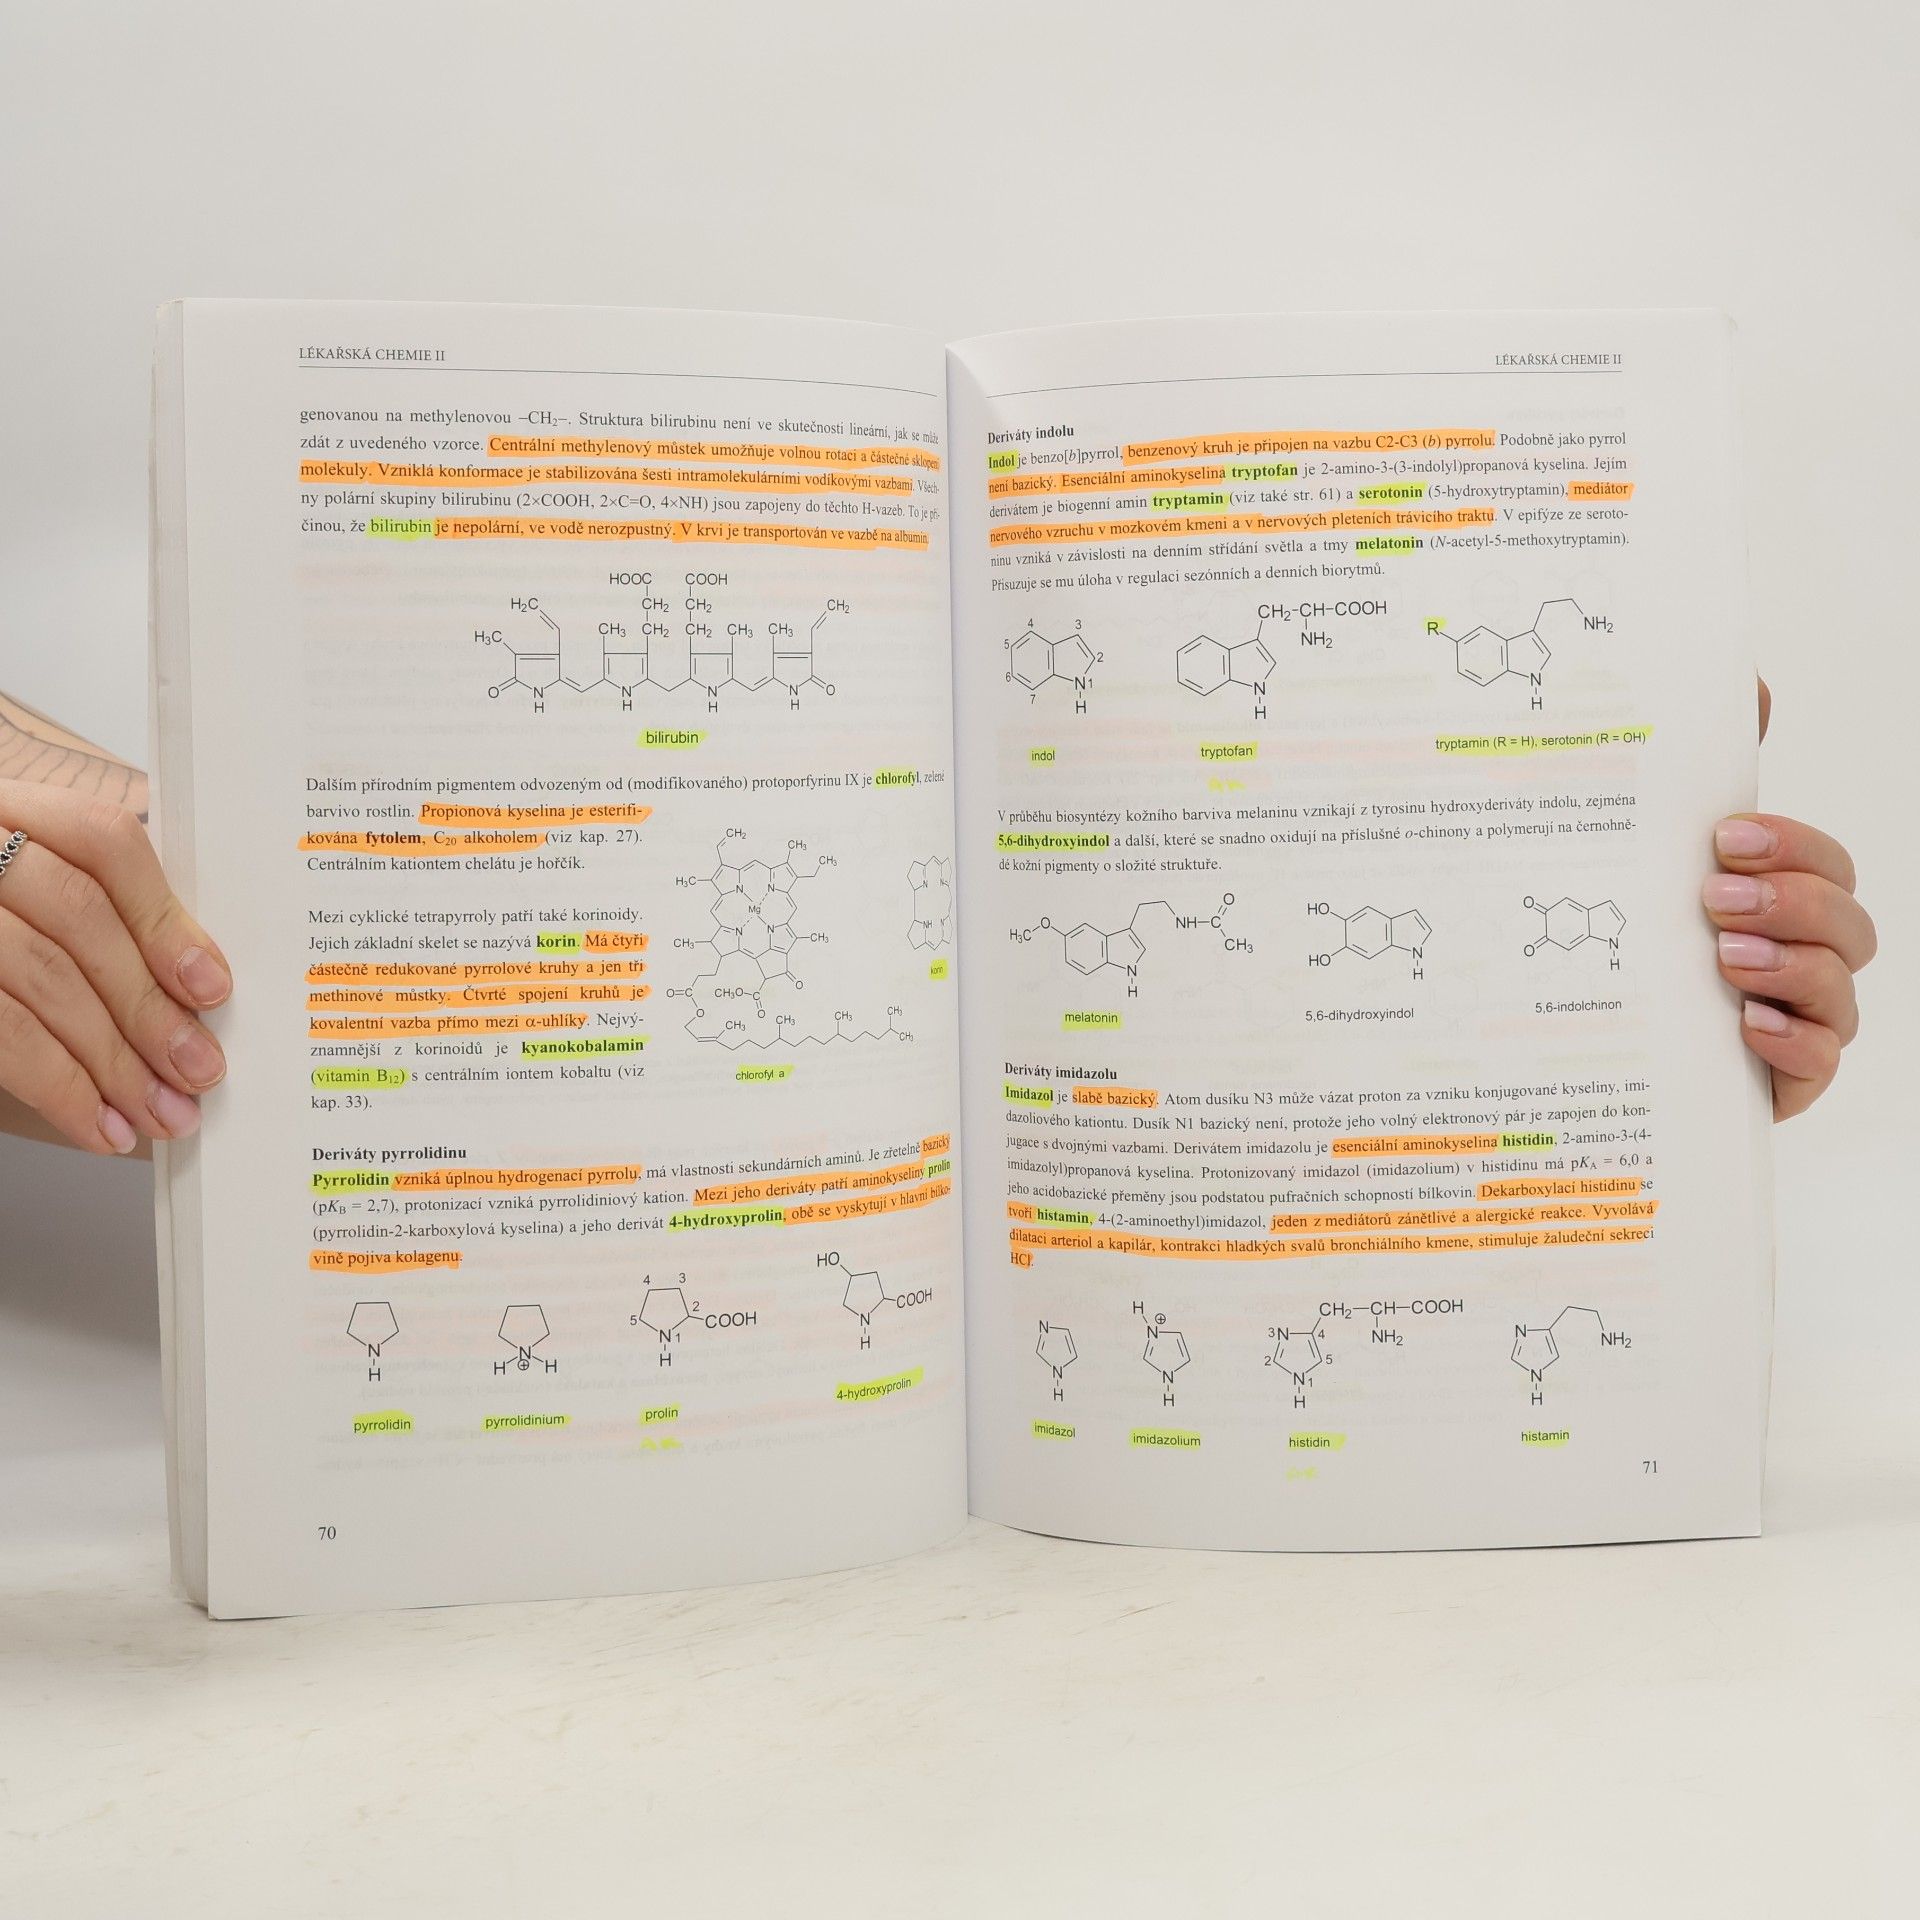 LÉKAŘSKÁ CHEMIE II
genovanou na methylenovou –CH₂–. Struktura bilirubinu není ve skutečnosti lineární, jak se může
zdát z uvedeného vzorce. Centrální methylenový můstek umožňuje volnou rotaci a částečné sklopení
molekuly. Vzniklá konformace je stabilizována šesti intramolekulárními vodíkovými vazbami. Všech-
ny polární skupiny bilirubinu (2×COOH, 2×C=O, 4×NH) jsou zapojeny do těchto H-vazeb. To je pří-
činou, že bilirubin je nepolární, ve vodě nerozpustný. V krvi je transportován ve vazbě na albumin.
HOOC COOH
H₂C CH₂ CH₂ CH₂
H₃C CH₃ CH₂ CH₂ CH₃ CH₃
O N N N N O
H H H H
bilirubin
Dalším přírodním pigmentem odvozeným od (modifikovaného) protoporfyrinu IX je chlorofyl, zelené
barvivo rostlin. Propionová kyselina je esterifi-
kována fytolem, C₂₀ alkoholem (viz kap. 27).
Centrálním kationtem chelátu je hořčík.
Mezi cyklické tetrapyrroly patří také korinoidy.
Jejich základní skelet se nazývá korin. Má čtyři
částečně redukované pyrrolové kruhy a jen tři
methinové můstky. Čtvrté spojení kruhů je
kovalentní vazba přímo mezi α-uhlíky. Nejvý-
znamnější z korinoidů je kyanokobalamin
(vitamin B₁₂) s centrálním iontem kobaltu (viz
kap. 33).
CH₂
CH₃
CH₃
H₃C
N N
Mg
N N
CH₃ CH₃
O=C CH₃O–C O
O O
CH₃ CH₃ CH₃ CH₃
CH₃
chlorofyl a
N N
NH N
korin
Deriváty pyrrolidinu
Pyrrolidin vzniká úplnou hydrogenací pyrrolu, má vlastnosti sekundárních aminů. Je zřetelně bazický
(pK_B = 2,7), protonizací vzniká pyrrolidiniový kation. Mezi jeho deriváty patří aminokyseliny prolin
(pyrrolidin-2-karboxylová kyselina) a jeho derivát 4-hydroxyprolin, obě se vyskytují v hlavní bílko-
vině pojiva kolagenu.
N
H
pyrrolidin
N
H ⊕ H
pyrrolidinium
4 3
5 2 COOH
N 1
H
prolin
AK
HO
COOH
N
H
4-hydroxyprolin
70
LÉKAŘSKÁ CHEMIE II
Deriváty indolu
Indol je benzo[b]pyrrol, benzenový kruh je připojen na vazbu C2-C3 (b) pyrrolu. Podobně jako pyrrol
není bazický. Esenciální aminokyselina tryptofan je 2-amino-3-(3-indolyl)propanová kyselina. Jejím
derivátem je biogenní amin tryptamin (viz také str. 61) a serotonin (5-hydroxytryptamin), mediátor
nervového vzruchu v mozkovém kmeni a v nervových pleteních trávicího traktu. V epifýze ze seroto-
ninu vzniká v závislosti na denním střídání světla a tmy melatonin (N-acetyl-5-methoxytryptamin).
Přisuzuje se mu úloha v regulaci sezónních a denních biorytmů.
4 3
5 2
6 N1
7 H
indol
CH₂-CH-COOH
NH₂
N
H
tryptofan
AK
R NH₂
N
H
tryptamin (R = H), serotonin (R = OH)
V průběhu biosyntézy kožního barviva melaninu vznikají z tyrosinu hydroxyderiváty indolu, zejména
5,6-dihydroxyindol a další, které se snadno oxidují na příslušné o-chinony a polymerují na černohně-
dé kožní pigmenty o složité struktuře.
H₃C O NH–C O
CH₃
N
H
melatonin
HO
HO N
H
5,6-dihydroxyindol
O
O N
H
5,6-indolchinon
Deriváty imidazolu
Imidazol je slabě bazický. Atom dusíku N3 může vázat proton za vzniku konjugované kyseliny, imi-
dazoliového kationtu. Dusík N1 bazický není, protože jeho volný elektronový pár je zapojen do kon-
jugace s dvojnými vazbami. Derivátem imidazolu je esenciální aminokyselina histidin, 2-amino-3-(4-
imidazolyl)propanová kyselina. Protonizovaný imidazol (imidazolium) v histidinu má pK_A = 6,0 a
jeho acidobazické přeměny jsou podstatou pufračních schopností bílkovin. Dekarboxylací histidinu se
tvoří histamin, 4-(2-aminoethyl)imidazol, jeden z mediátorů zánětlivé a alergické reakce. Vyvolává
dilataci arteriol a kapilár, kontrakci hladkých svalů bronchiálního kmene, stimuluje žaludeční sekreci
HCl.
N
N
H
imidazol
H
N ⊕
N
H
imidazolium
CH₂–CH–COOH
3N 4 NH₂
2 5
N1
H
histidin
AK
N NH₂
N
H
histamin
71